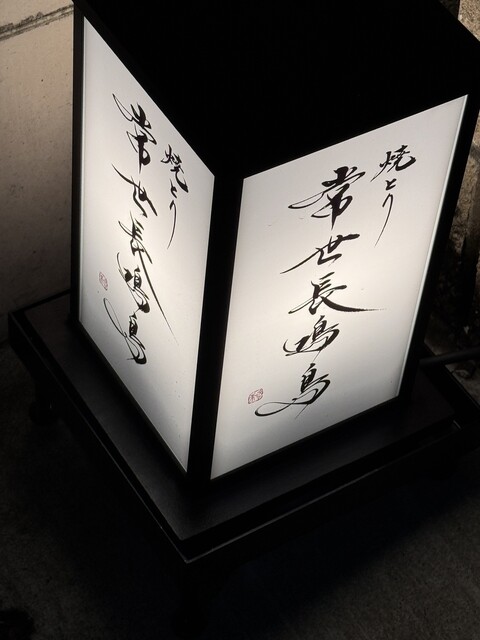 焼とり
常世長鳴鳥
焼とり
常世長鳴鳥